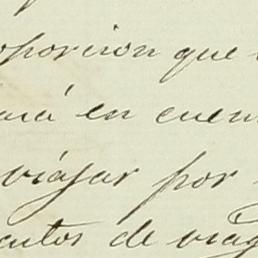 oporcion que
ará en cuen
viájar por
entos de viag